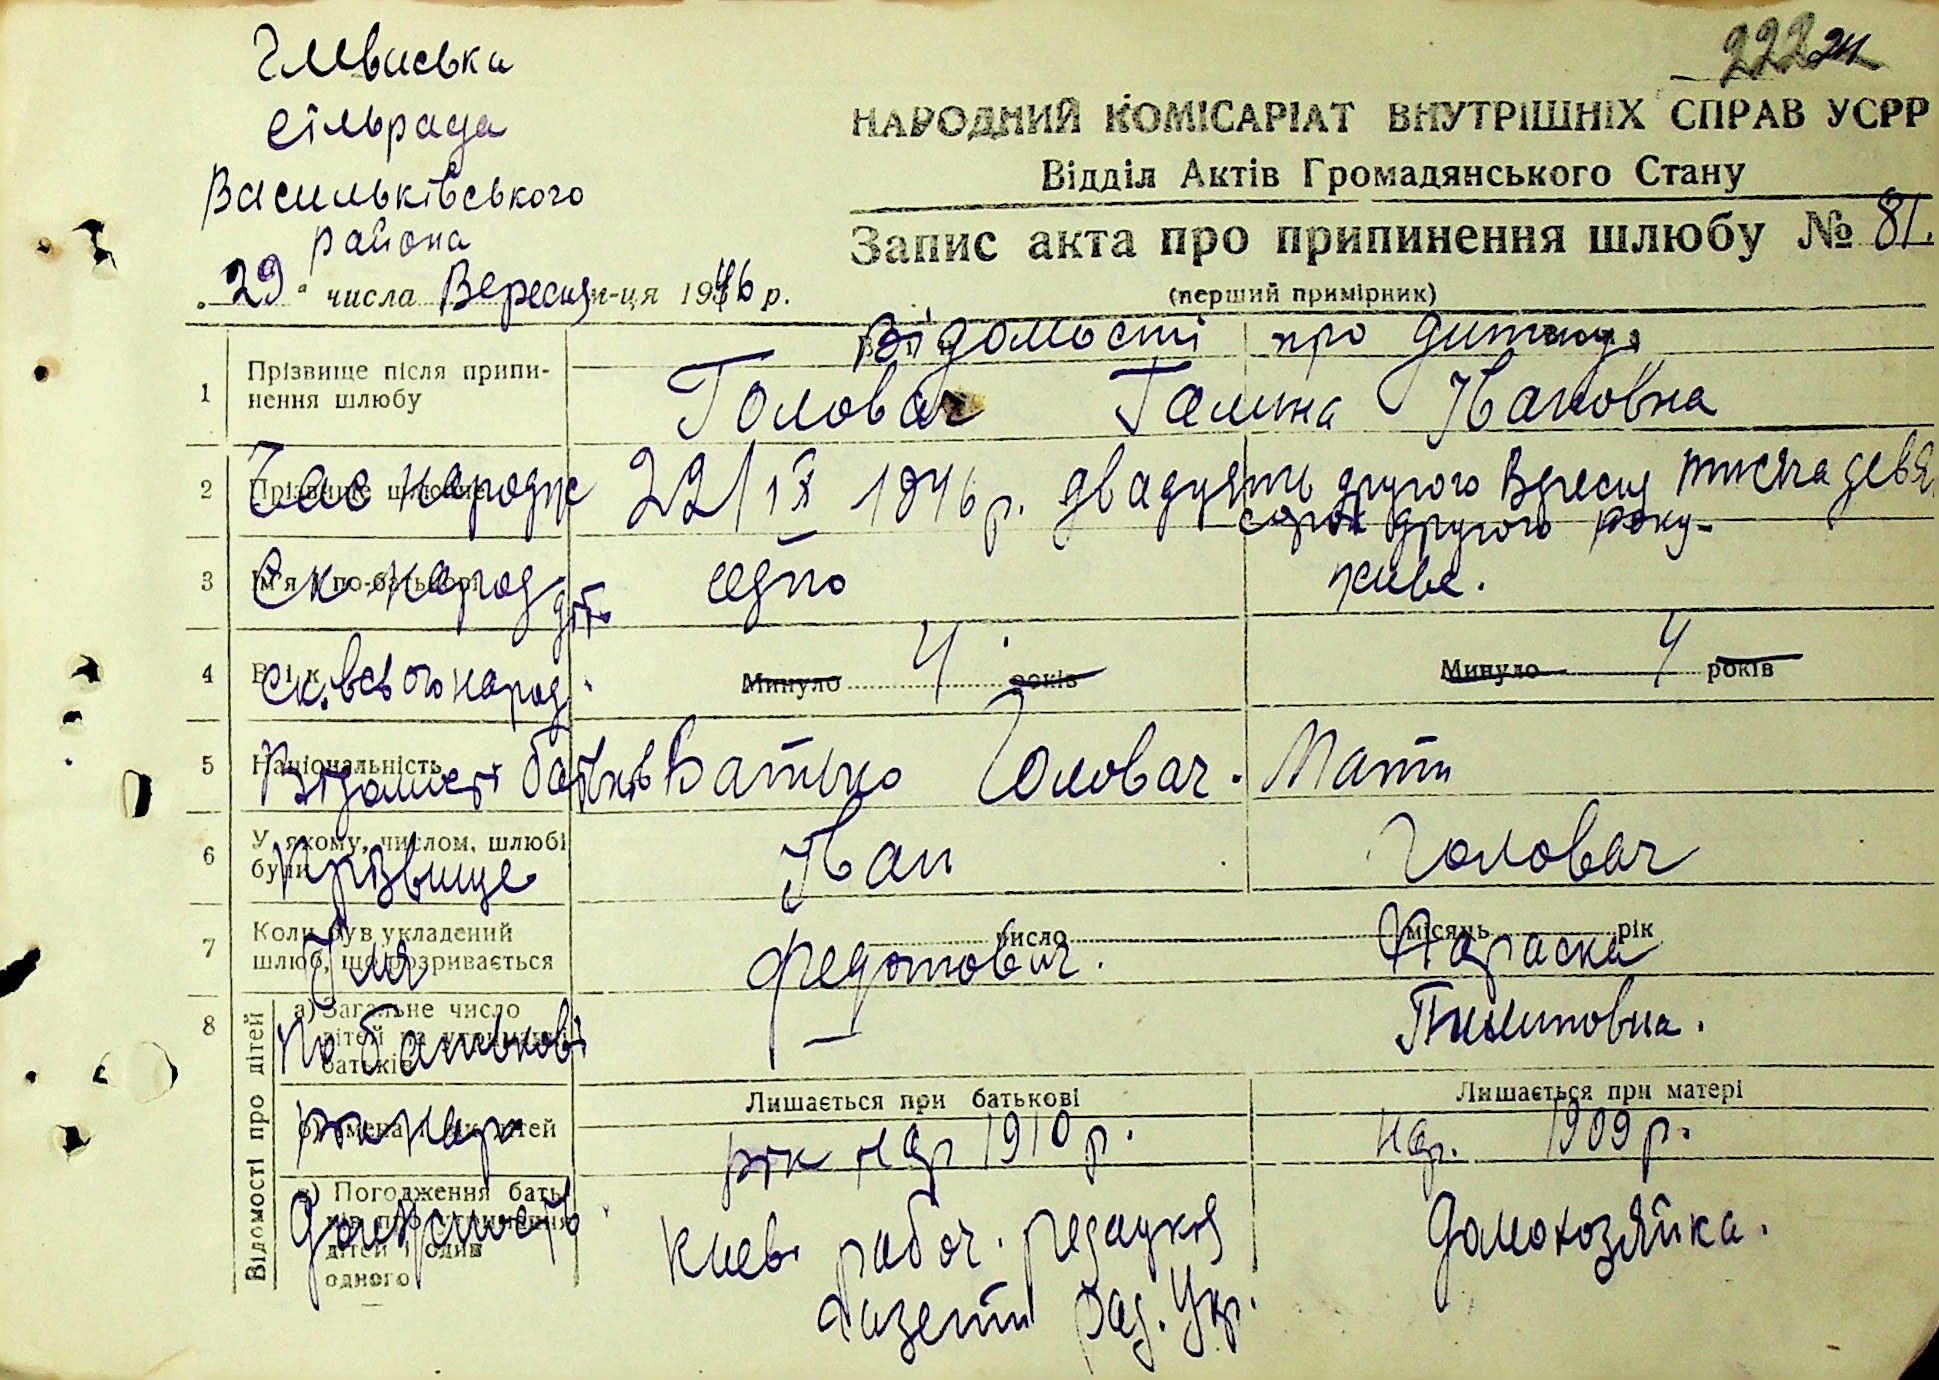 Глеваська
сільрада
Васильківського
района
222
НАРОДНИЙ КОМІСАРІАТ ВНУТРІШНІХ СПРАВ УСРР
Відділ Актів Громадянського Стану
Запис акта про припинення шлюбу № 81.
(перший примірник)
„29" числа Вересня м-ця 1946 р.
Відомості про дитину
1 Прізвище після припинення шлюбу
Головач Галина Івановна
2 Прізвище
Час народже 22/IX 1946 р. двадцять другого Вересня тисяча девя
сорок другого року
3 Ім'я по-батькові
Ск. народ. діт. одно живе.
4 Вік
Ск. всього народ. Минуло 4 років Минуло 4 років
5 Національність
Відомості батьків Батько Головач. Мати
6 У якому, числом, шлюбі були
Прізвище Іван Головач
7 Коли був укладений шлюб, що розривається
число місяць рік
Імя Федотович. Параска
8 Відомості про дітей
а) Загальне число дітей на утриманні батьків
По батькові Пилиповна.
Лишається при батькові Лишається при матері
б) Імена і вік дітей
рік нар рік нар 1910 р. нар. 1909 р.
в) Погодження батьків про утримання дітей і один одного
Київ рабоч. редакція Домохозяйка.
Газети Рад. Укр.